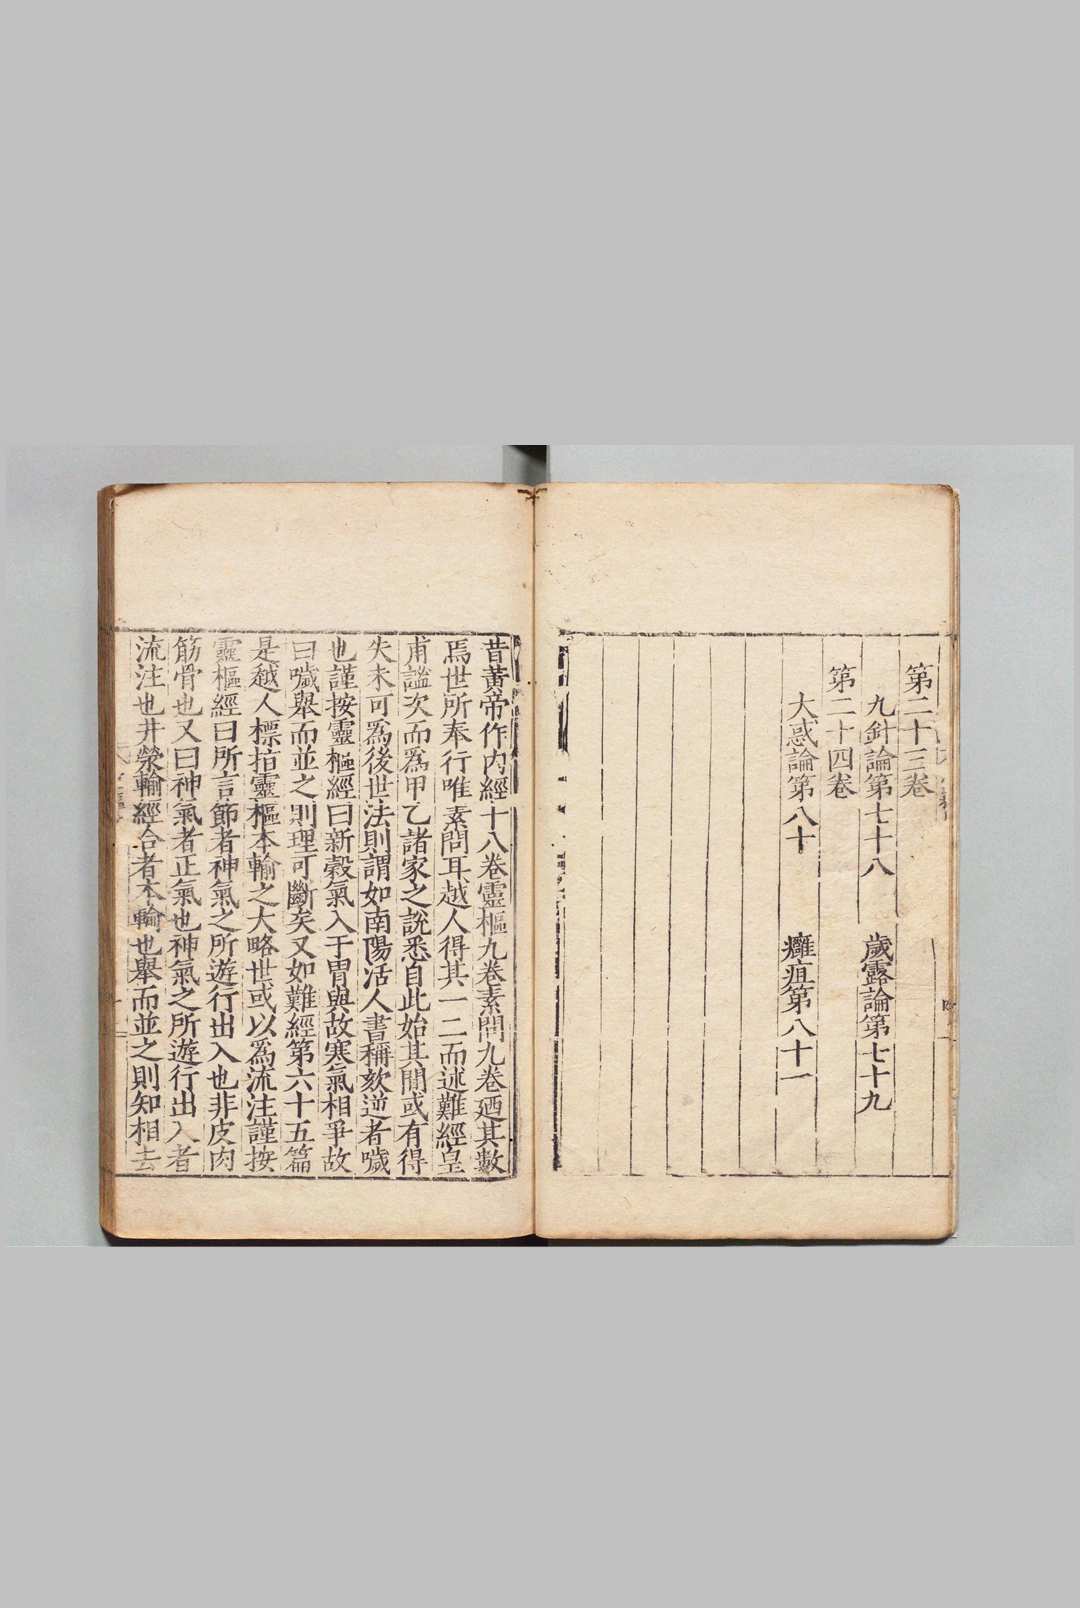 第二十三卷
九針論第七十八　歲露論第七十九
第二十四卷
大惑論第八十　癰疽第八十一
昔黃帝作內經十八卷靈樞九卷素問九卷廼其數
焉世所奉行唯素問耳越人得其一二而述難經皇
甫謐次而爲甲乙諸家之說悉自此始其間或有得
失未可爲後世法則謂如南陽活人書稱欬逆者噦
也謹按靈樞經曰新穀氣入于胃與故寒氣相爭故
曰噦舉而並之則理可斷矣又如難經第六十五篇
是越人標指靈樞本輸之大略世或以爲流注謹按
靈樞經曰所言節者神氣之所遊行出入也非皮肉
筋骨也又曰神氣者正氣也神氣之所遊行出入者
流注也井滎輸經合者本輸也舉而並之則知相去